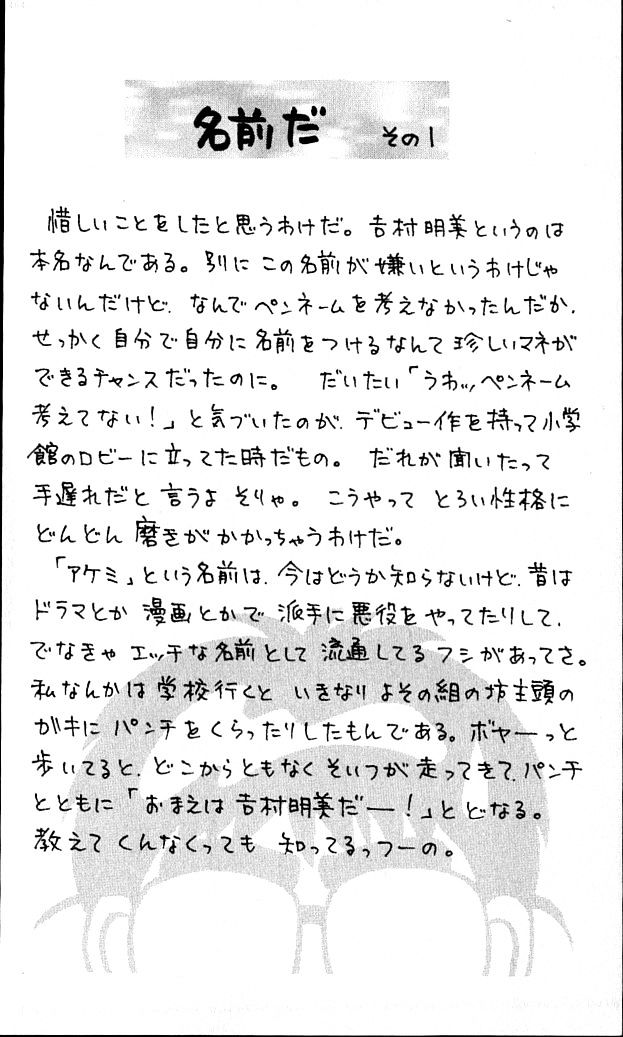 名前だ その1
惜しいことをしたと思うわけだ。吉村明美というのは
本名なんである。別に この名前が嫌いというわけじゃ
ないんだけど、なんでペンネームを考えなかったんだか、
せっかく自分で自分に名前をつけるなんて珍しいマネが
できるチャンスだったのに。 だいたい「うわッ、ペンネーム
考えてない!」と気づいたのが、デビュー作を持って小学
館のロビーに立ってた時だもの。 だれが聞いたって
手遅れだと言うよ そりゃ。 こうやって とろい性格に
どんどん磨きがかかっちゃうわけだ。
「アケミ」という名前は、今はどうか知らないけど、昔は
ドラマとか 漫画とかで 派手に悪役をやってたりして、
でなきゃ エッチな名前として 流通してるフシがあってさ。
私なんかは学校行くと いきなり よその組の坊主頭の
ガキに パンチをくらったりしたもんである。ボヤーっと
歩いてると、どこからともなくそいつが走ってきて、パンチ
とともに「おまえは吉村明美だー!」とどなる。
教えてくんなくっても 知ってるっつーの。